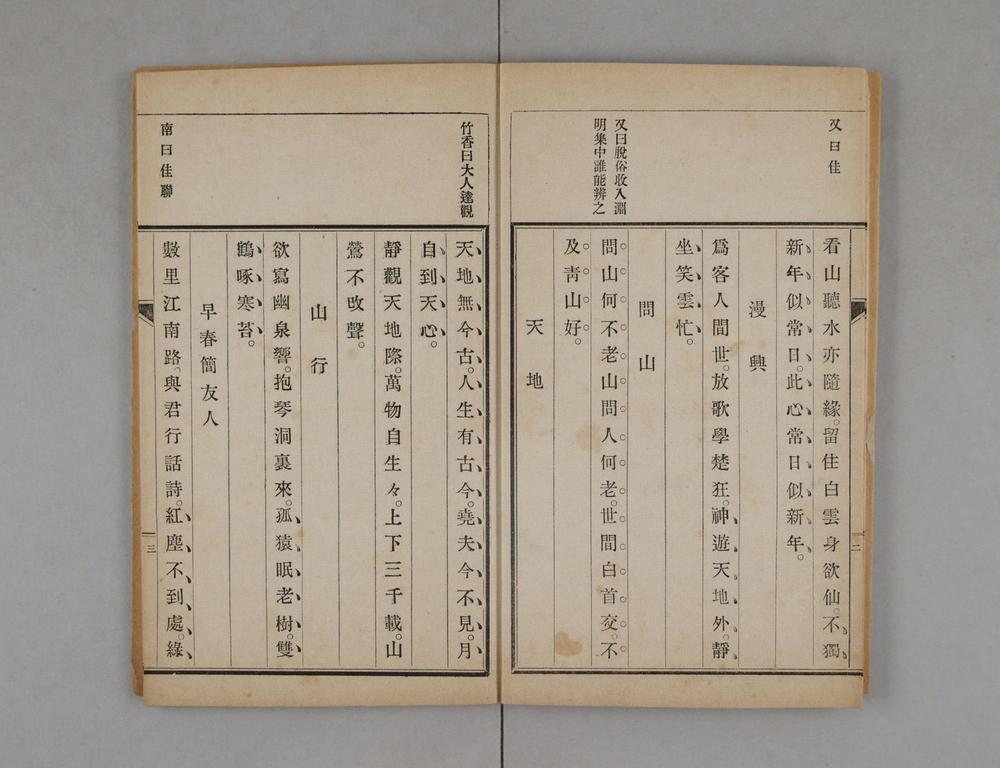 又曰佳
又曰脫俗收入淵
明集中誰能辨之
看山聽水亦隨緣。留住白雲身欲仙。不獨
新年似常日。此心常日似新年。
漫興
爲客人間世。放歌學楚狂。神遊天地外。靜
坐笑雲忙。
問山
問山何不老山問人何老。世間白首交。不
及靑山好。
天地
二
竹香曰大人達觀
南曰佳聯
天地無今古。人生有古今。堯夫今不見。月
自到天心。
靜觀天地際。萬物自生々。上下三千載。山
鶯不改聲。
山行
欲寫幽泉響。抱琴洞裏來。孤猿眠老樹。雙
鶴啄寒苔。
早春簡友人
數里江南路。與君行話詩。紅塵不到處。綠
三